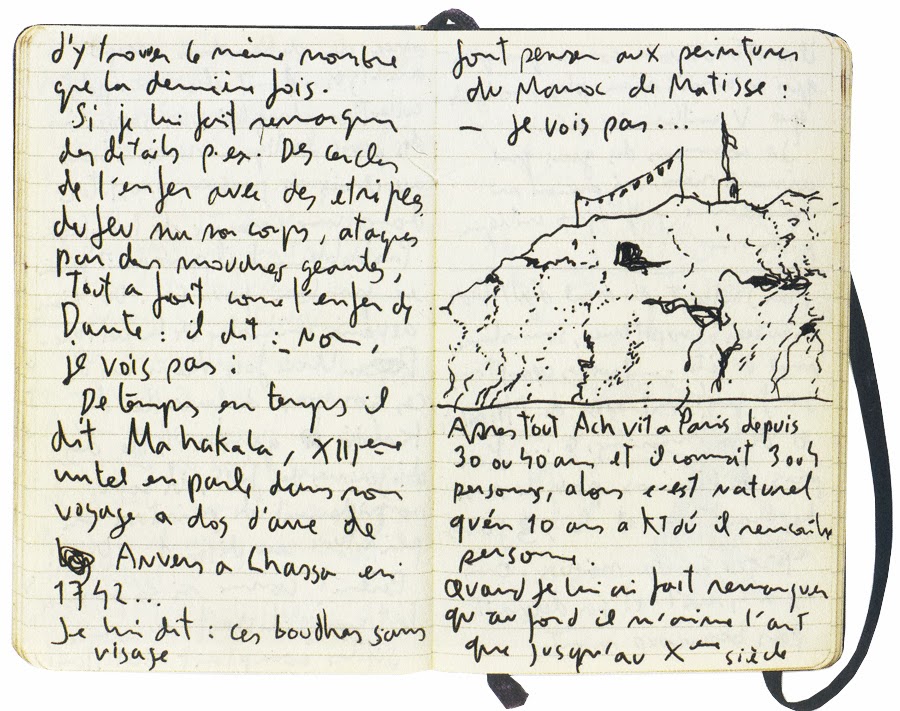 d'y trouver le même nombre
que la dernière fois.
Si je lui fait remarquer
des détails p.ex. Des cercles
de l'enfer avec des etripés,
du feu sur son corps, ataques
par des mouches geantes,
Tout a fait come l'enfer de
Dante : il dit : - Non,
je vois pas :
De temps en temps il
dit Mahakala, XIIeme
untel en parle dans son
voyage a dos d'ane de
Anvers a Lhassa en
1742...
Je lui dit : ces boudhas sans
visage
font penser aux peintures
du Maroc de Matisse :
- je vois pas...
Apres tout Ach vit a Paris depuis
30 ou 40 ans et il connait 3 ou 4
persones, alors c'est naturel
qu'én 10 ans a KTdú il rencontre
persone.
Quand je lui ai fait remarquer
qu'au fond il n'aime l'art
que jusqu'au Xeme siècle